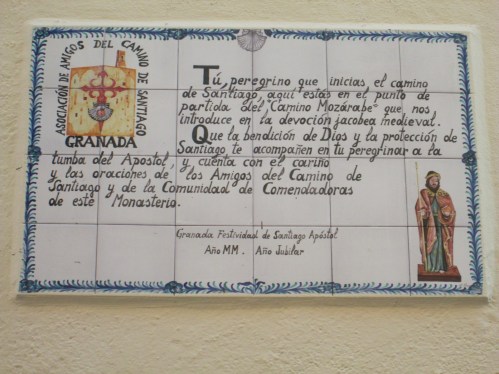 ASOCIACIÓN DE AMIGOS DEL CAMINO DE SANTIAGO
GRANADA
Tú, peregrino que inicias el camino
de Santiago, aquí estás en el punto de
partida del "Camino Mozárabe" que nos
introduce en la devoción jacobea medieval.
Que la bendición de Dios y la protección de
Santiago te acompañen en tu peregrinar a la
tumba del Apóstol y cuenta con el cariño
y las oraciones de los Amigos del Camino de
Santiago y de la Comunidad de Comendadoras
de este Monasterio.
Granada Festividad de Santiago Apóstol
Año MM. Año Jubilar